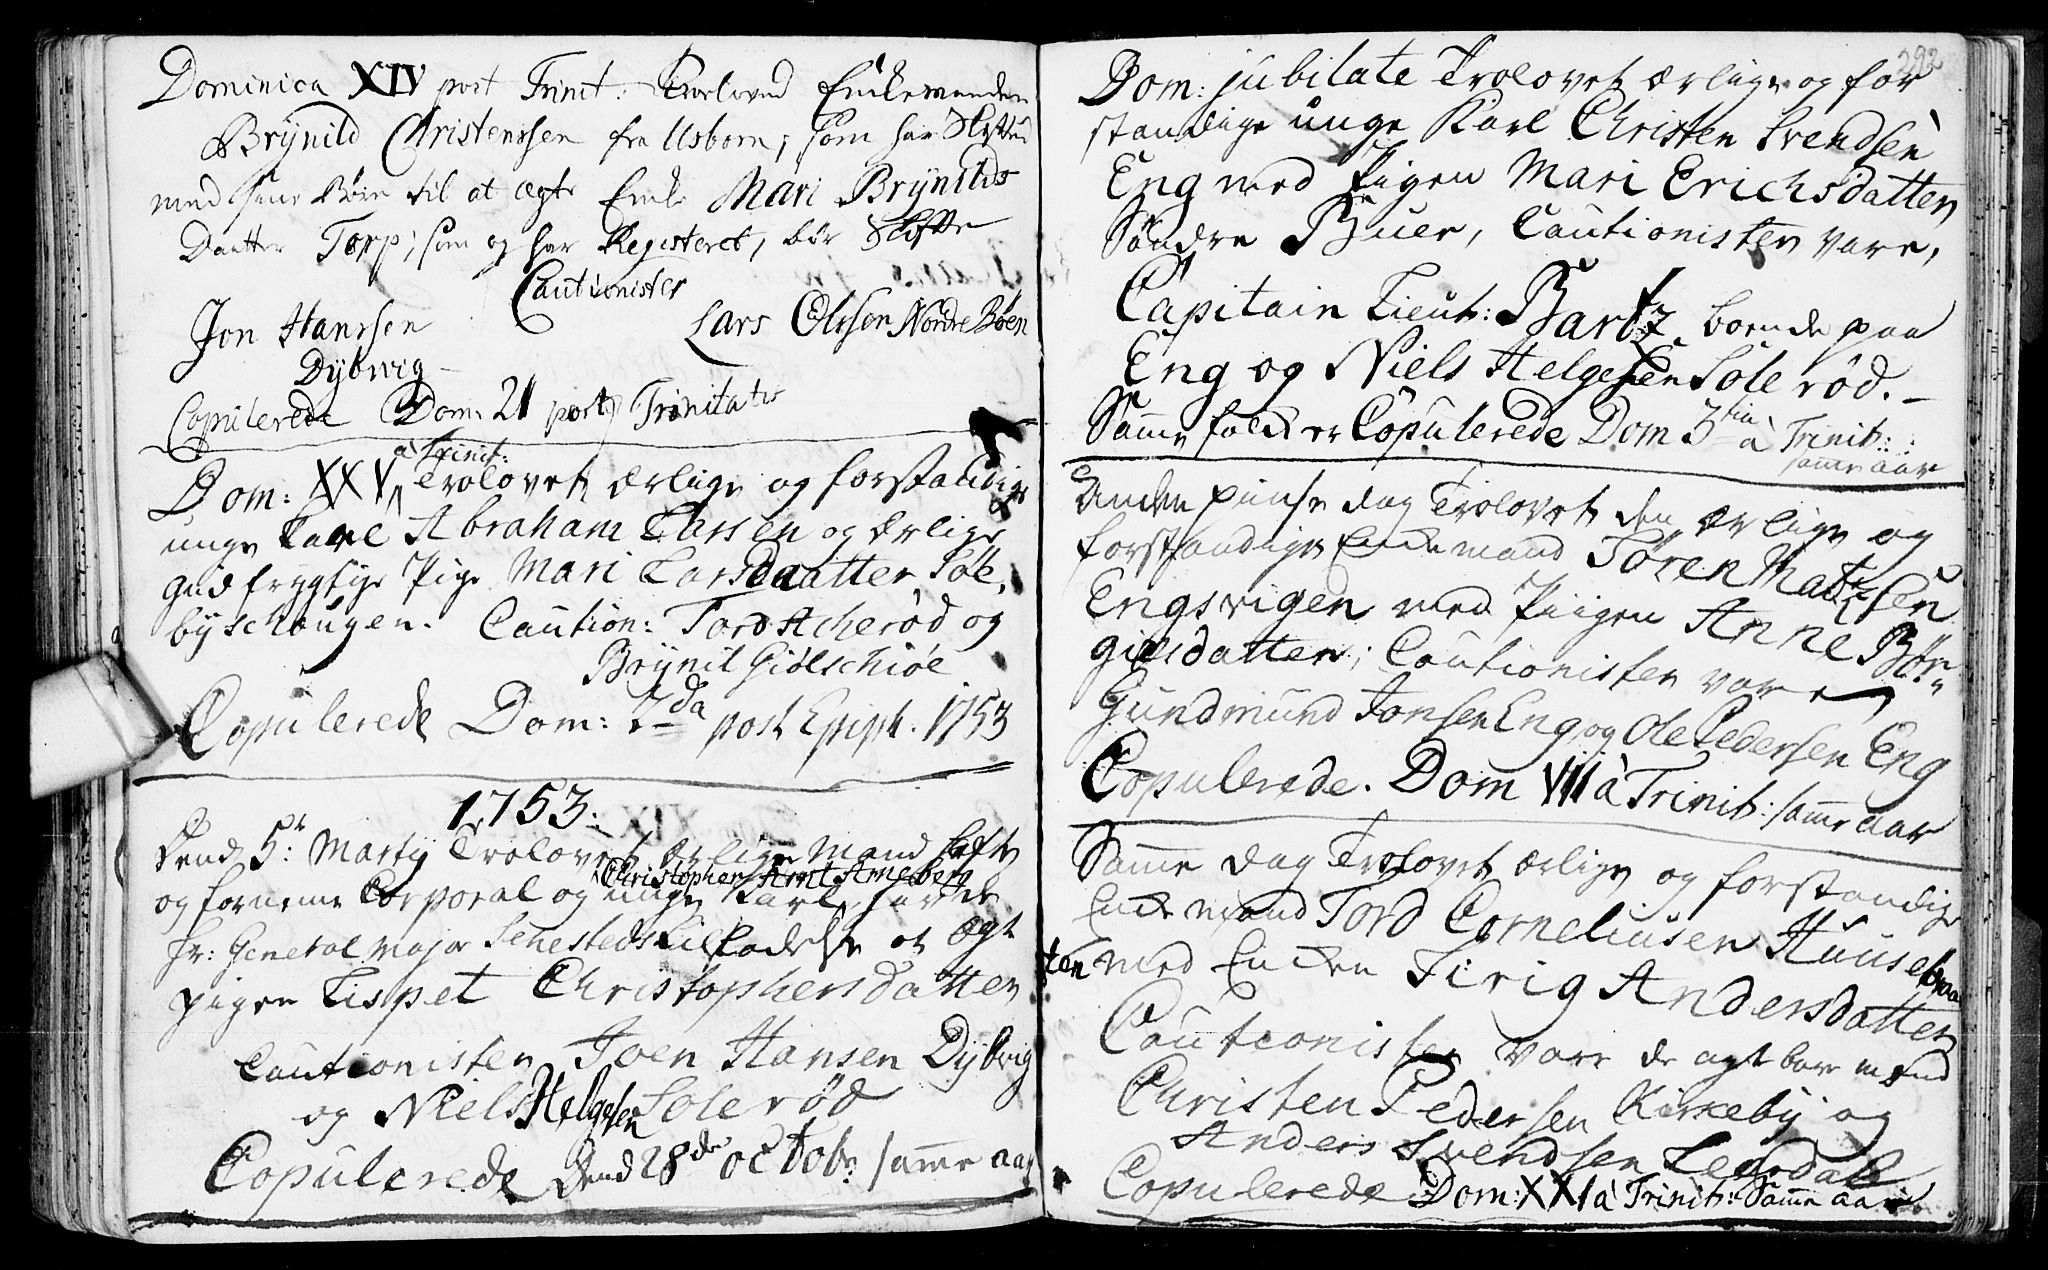 Dominica XIV post Trinit: Troloved Enkemanden
Brÿnild Christenssen fra Usborn, som har Skifted
med sine Børn til at ægte Enke Mari Brÿnilds
Daatter Torp, som og har Registeret, bør Skifte
Cautionister
Jon Hanssen Lars Olssen Nordre Bøen
Dÿbwig
Copulerede Dom: 21 post Trinitatis
à Trinit:
Dom: XXV Trolovet ærlige og forstandige
unge Karl Abraham Larssen og ærlige
gudfrygtige Pige Mari Larsdaatter Søe,
byschougen. Caution: Tord Acherød og
Brÿnil Giølschiøe
Copulerede Dom: 2da post Epiph. 1753
1753:
Dend 5t Martÿ Trolovet ærlige mand
Christopher Arnt Arneberg
og fornemme Corporal og unge Karl, havde
Hr: General Major Schesteds tilladelse at ægte
pigen Lispet Christophersdatter
Cautionister Joen Hansen Dÿbvig
og Niels Helgesen Solerød
Copulerede dend 28de octobr samme aar
292
Dom: jubilate Trolovet ærlige og for
standige unge Karl Christen Svendsen
Eng med Pigen Mari Erichsdatter
Søndre Buer, Cautionister vare,
Capitain Lieut: Bartz boende paa
Eng og Niels Helgesen Solerød.
Samme folk er Copulerede Dom 3tia à Trinit:
samme aar
Anden pinse dag Trolovet den ærlige og
forstandige Enkemand Søren Matisen
Engsvigen med Piigen Anne Bør-
gilsdatter; Cautionister vare
Gundmund Jonsen Eng og Ole Pedersen Eng
Copulerede. Dom VII à Trinit: samme aar
Samme dag Trolovet ærlige og forstandige
Enkemand Tord Corneliusen Huusebraa
ten med Enken Sirig Andersdatter
Cautionister vare de agtbare mænd
Christen Pedersen Kirkebÿ og
Anders Svendsen Leersdall
Copulerede Dom: XXI à Trinit: Samme aar